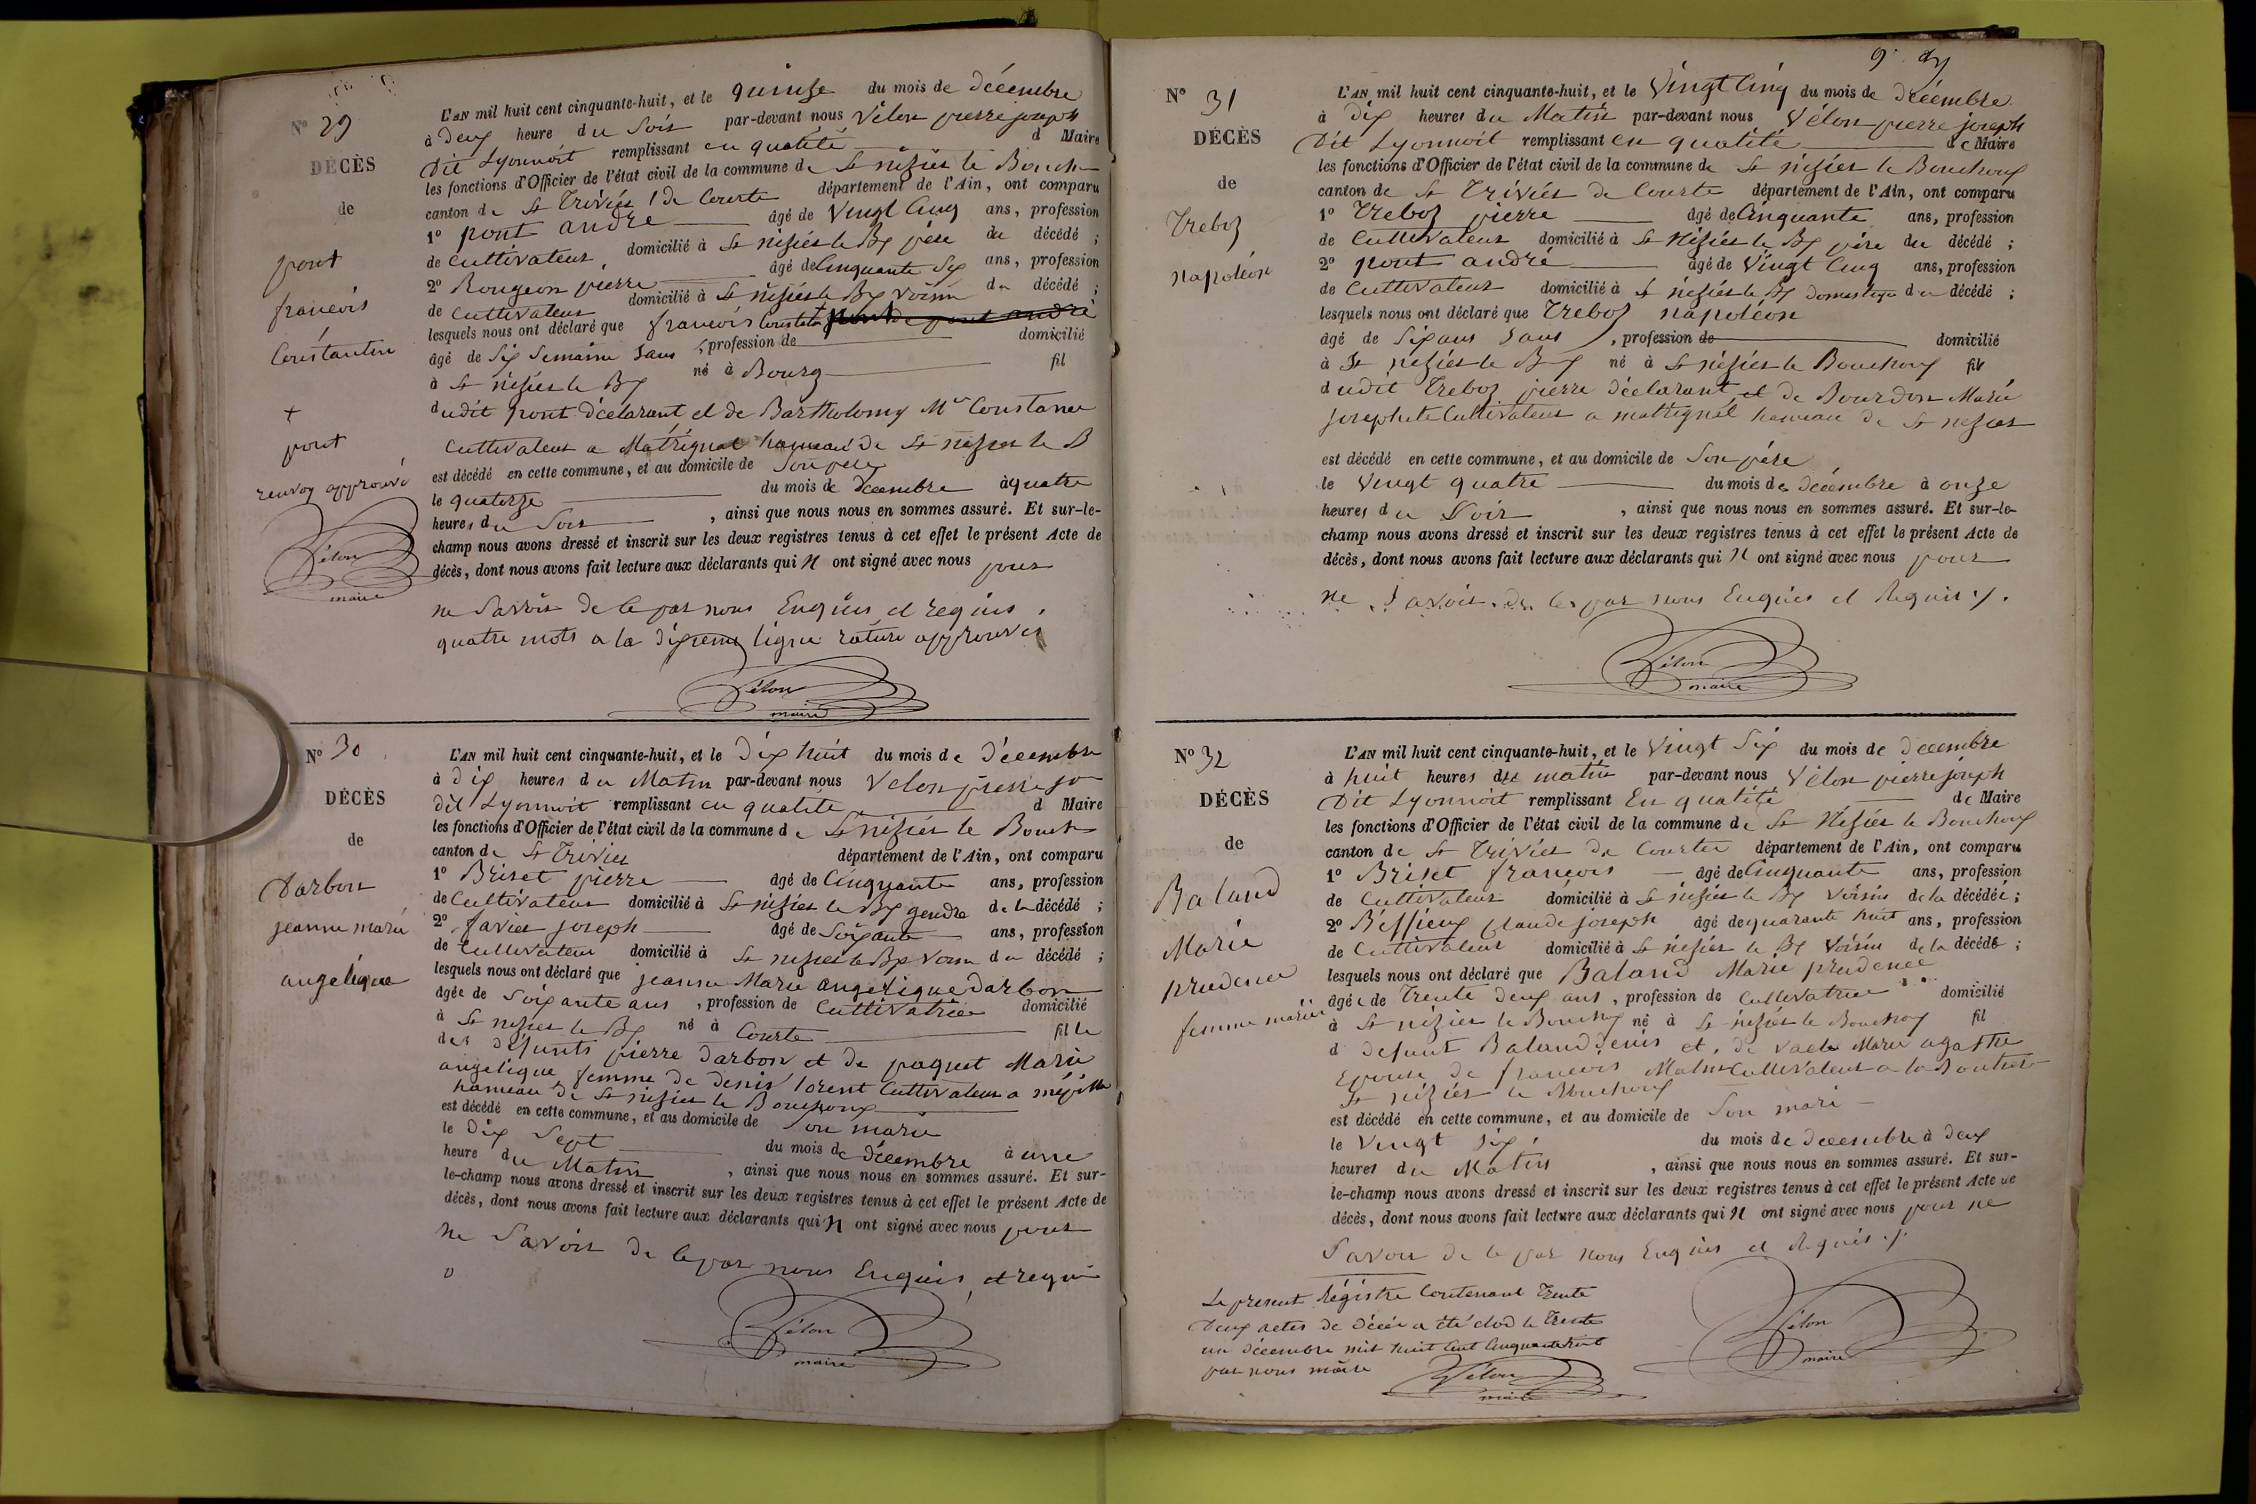 N° 29
DÉCÈS
de
pont
francois
Constantin
+
pont
renvoy approuvé
Vélon
maire
L'AN mil huit cent cinquante-huit, et le quinze du mois de décembre
à deux heure du Soir par-devant nous Vélon pierre joseph
Dit Lyonnoit remplissant en qualité d Maire
les fonctions d'Officier de l'état civil de la commune de St nizier le Bouch
canton de St Trivier de Courte département de l'Ain, ont comparu
1° pont andré âgé de Vingt Cinq ans, profession
de Cultivateur domicilié à St nizier le Bx père du décédé ;
2° Rongeon pierre âgé de Cinquante Six ans, profession
de Cultivateur domicilié à St nizier le Bx voisin du décédé ;
lesquels nous ont déclaré que francois Constatn pont de pont andré
âgé de Six Semaine Sans , profession de domicilié
à St nizier le Bx né à Bourg fil
dudit pont déclarant et de Bartholomy Mie Constance
Cultivateur a Matrignat hameau de St nizier le B
est décédé en cette commune, et au domicile de Son père
le quatorze du mois de décembre à quatre
heures du Soir , ainsi que nous nous en sommes assuré. Et sur-le-
champ nous avons dressé et inscrit sur les deux registres tenus à cet effet le présent Acte de
décès, dont nous avons fait lecture aux déclarants qui N ont signé avec nous pour
ne Savoir de le par nous Enquis et requis
quatre mots a la dixieme ligne rature approuvés
Vélon
maire
N° 30
DÉCÈS
de
Darbon
jeanne marie
angélique
L'AN mil huit cent cinquante-huit, et le Dix huit du mois de décembre
à dix heures du Matin par-devant nous Velon pierre jo
dit Lyonnoit remplissant en qualité d Maire
les fonctions d'Officier de l'état civil de la commune de St nizier le Bouch
canton de St Trivier département de l'Ain, ont comparu
1° Briset pierre âgé de Cinquante ans, profession
de Cultivateur domicilié à St nizier le Bx gendre de la décédé ;
2° favier joseph âgé de Soixante ans, profession
de Cultivateur domicilié à St nizier le Bx Voisin du décédé ;
lesquels nous ont déclaré que jeanne Marie angelique darbon
âgée de Soixante ans , profession de Cultivatrice domicilié
à St nizier le Bx né à Courte fille
des défunts pierre darbon et de paquet Marie
angelique femme de denis lorent Cultivateur a
hameau de St nizier le Bouchoux
est décédé en cette commune, et au domicile de Son marie
le dix Sept du mois de décembre à une
heure du Matin , ainsi que nous nous en sommes assuré. Et sur-
le-champ nous avons dressé et inscrit sur les deux registres tenus à cet effet le présent Acte de
décès, dont nous avons fait lecture aux déclarants qui N ont signé avec nous pour
ne Savoir de le par nous Enquis et requi
Vélon
maire
N° 31
DÉCÈS
de
Treboz
napoléon
L'AN mil huit cent cinquante-huit, et le Vingt Cinq du mois de décembre
à dix heures du Matin par-devant nous Vélon pierre joseph
Dit Lyonnoit remplissant en qualité de Maire
les fonctions d'Officier de l'état civil de la commune de St nizier le Bouchoux
canton de St Trivier de Courte département de l'Ain, ont comparu
1° Treboz pierre âgé de Cinquante ans, profession
de Cultivateur domicilié à St Nizier le Bx père du décédé ;
2° pont andré âgé de Vingt Cinq ans, profession
de Cultivateur domicilié à St nizier le Bx domestique du décédé ;
lesquels nous ont déclaré que Treboz napoléon
âgé de Six ans Sans , profession de domicilié
à St nizier le Bx né à St nizier le Bouchoux fils
dudit Treboz pierre déclarant et de Bourdon Marie
josephete Cultivateur a matrignat hameau de St nizier
est décédé en cette commune, et au domicile de Son père
le Vingt quatre du mois de décembre à onze
heures du Soir , ainsi que nous nous en sommes assuré. Et sur-le-
champ nous avons dressé et inscrit sur les deux registres tenus à cet effet le présent Acte de
décès, dont nous avons fait lecture aux déclarants qui N ont signé avec nous pour
ne Savoir de le par nous Enquis et Requis ./.
Vélon
maire
N° 32
DÉCÈS
de
Baland
Marie
prudence
femme mariée
L'AN mil huit cent cinquante-huit, et le Vingt Six du mois de décembre
à huit heures du matin par-devant nous Vélon pierre joseph
Dit Lyonnoit remplissant En qualité de Maire
les fonctions d'Officier de l'état civil de la commune de St Nizier le Bouchoux
canton de St Trivier de Courte département de l'Ain, ont comparu
1° Briset francois âgé de Cinquante ans, profession
de Cultivateur domicilié à St nizier le Bx Voisin de la décédée ;
2° Béffieux Claude joseph âgé de quarante huit ans, profession
de Cultivateur domicilié à St nizier le Bx Voisin de la décédé ;
lesquels nous ont déclaré que Baland Marie prudence
âgée de Trente deux ans , profession de Cultivatrice domicilié
à St nizier le Bouchoux né à St nizier le Bouchoux fil
d defunt Baland denis et de Marie agathe
Epouse de francois Cultivateur a la
St nizier le Bouchoux
est décédé en cette commune, et au domicile de Son mari
le Vingt Six du mois de décembre à deux
heures du Matin , ainsi que nous nous en sommes assuré. Et sur-
le-champ nous avons dressé et inscrit sur les deux registres tenus à cet effet le présent Acte de
décès, dont nous avons fait lecture aux déclarants qui N ont signé avec nous pour ne
Savoir de le par nous Enquis et Requis ./.
Le present Régistre Contenant Trente
Deux actes de décès a été clod le Trente
un décembre mil huit Cent Cinquante huit
par nous maire
Vélon
maire
Vélon
maire